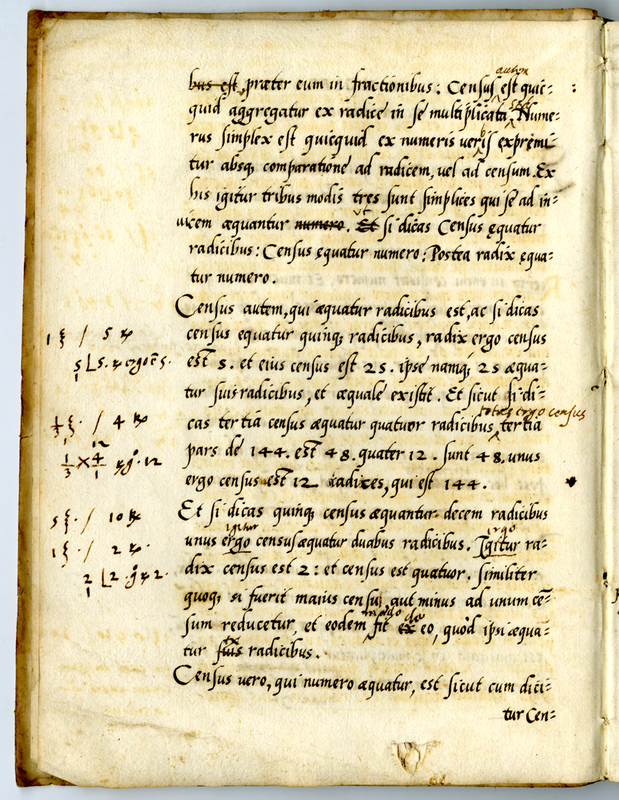 autem
bus est, præter eum in fractionibus: Census est quic=
quid aggregatur ex radice in se multiplicata. Nume=
rus simplex est quicquid ex numeris verbis exprimi
tur absq; comparatione ad radicem, vel ad censum. Ex
his igitur tribus modis tres sunt simplices qui se ad in=
vt
uicem æquantur numero. Et si dicas Census ęquatur
radicibus: Census ęquatur numero: Postea radix ęqua=
tur numero.
Census autem, qui æquatur radicibus est, ac si dicas
census equatur quinq; radicibus, radix ergo census
est 5. et eius census est 25. ipse namq; 25 æqua=
tur suis radicibus, et æquale existit. Et sicut si di=
totus ergo census
cas tertia census æquatur quatuor radicibus, tertia
pars de 144. est 48. quater 12. sunt 48. unus
ergo census est 12 radices, qui est 144.
Et si dicas quinq; census æquantur decem radicibus
igitur ergo
unus ergo census æquatur duabus radicibus. Igitur ra=
dix census est 2: et census est quatuor. Similiter
quoq; si fuerit maius censu, aut minus ad unum cē=
modo de
sum reducetur, et eodem fit ex eo, quòd ipsi æqua=
tur suis radicibus.
Census vero, qui numero æquatur, est sicut cum dici=
tur Cen=
1 / 5
5 5. ergo 5.
1
1/3 / 4
12
1/3 X 4/1 12
5 / 10
1 / 2
2 2. 2.
1